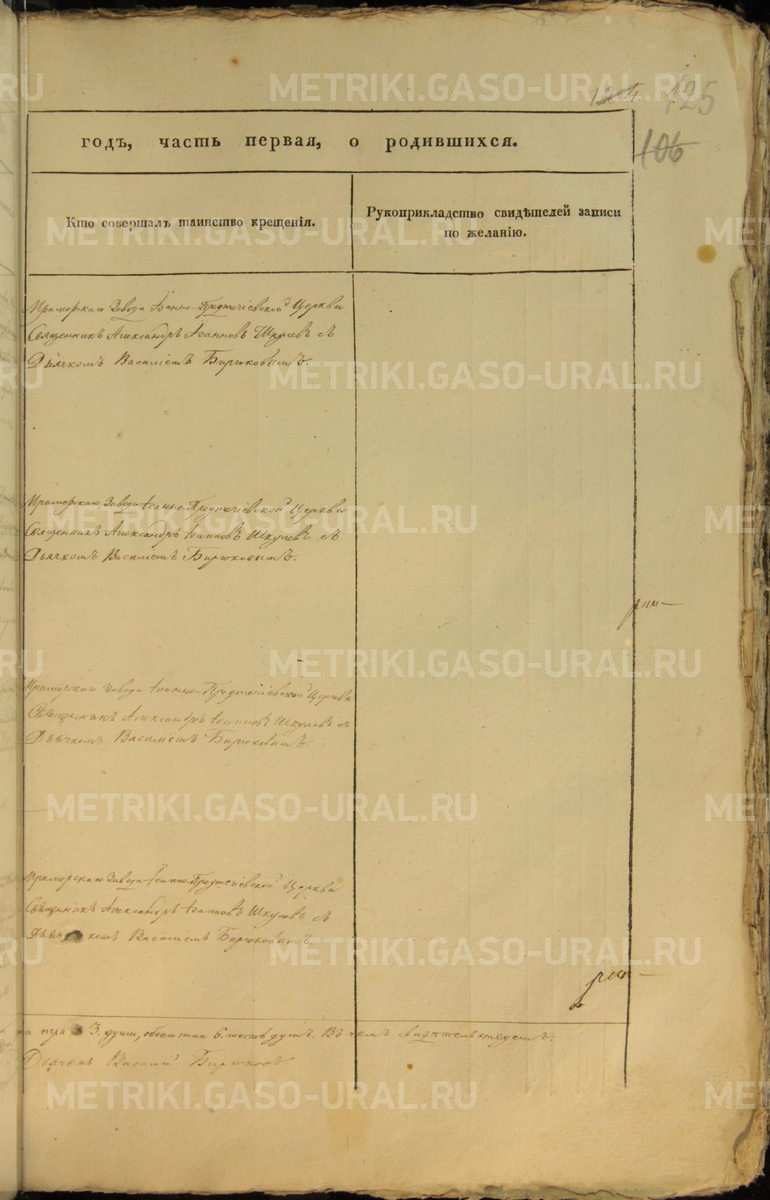 METRIKI.GASO-URAL.RU
124 125
106
годъ, часть первая, о родившихся.
Кто совершалъ таинство крещенія.
Рукоприкладство свидѣтелей записи
по желанію.
Мраморскаго Завода Іоанно-Предтечіевской Церкви
Священникъ Александръ Іоанновъ Шкулевъ съ
Дьячкомъ Василіемъ Бирюковымъ.
Мраморскаго Завода Іоанно-Предтечіевской Церкви
Священникъ Александръ Іоанновъ Шкулевъ съ
Дьячкомъ Василіемъ Бирюковымъ.
Мраморскаго Завода Іоанно-Предтечіевской Церкви
Священникъ Александръ Іоанновъ Шкулевъ съ
Дьячкомъ Василіемъ Бирюковымъ.
Мраморскаго Завода Іоанно-Предтечіевской Церкви
Священникъ Александръ Іоанновъ Шкулевъ съ
Дьячкомъ Василіемъ Бирюковымъ.
3. души, обоего пола 6. шесть душъ. Въ чемъ свидетельствуемъ:
Дьячекъ Василий Бирюковъ.